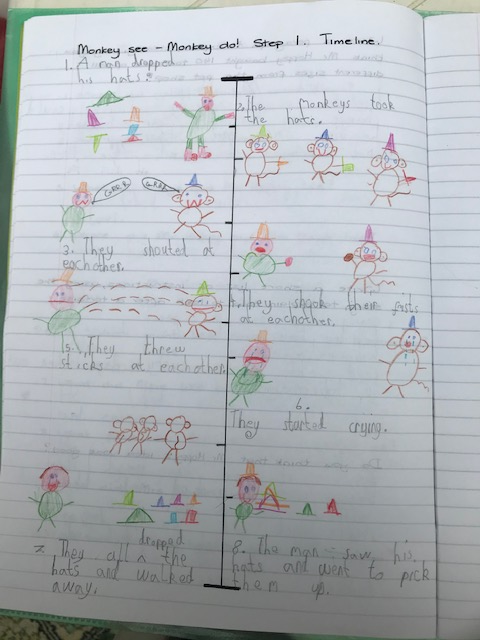 Monkey see - Monkey do! Step 1. Timeline.
1. A man dropped
his hats.
2. The monkeys took
the hats.
GRRR
GRRR
3. They shouted at
eachother.
4. They shook their fists
at eachother.
5. They threw
sticks at eachother.
6.
They started crying.
7. They all dropped the
hats and walked
away.
8. The man saw his
hats and went to pick
them up.